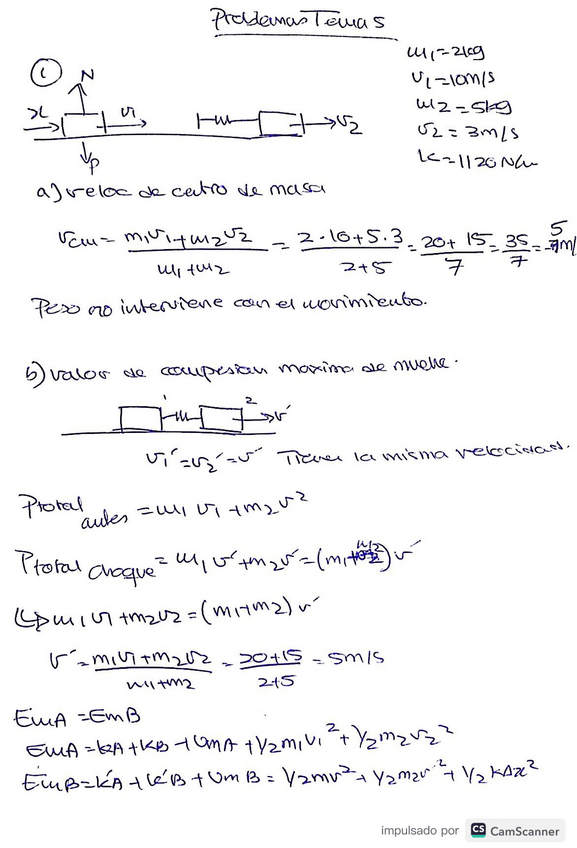 Problemas Tema 5
m1=2kg
v1=10m/s
m2=5kg
v2=3m/s
k=1120N/m
1 N
x v1 v2
p
a) veloc de cetro de masa
vcm = (m1v1+m2v2)/(m1+m2) = (2·10+5·3)/(2+5) = (20+15)/7 = 35/7 = 5 m/
Peso no interviene con el movimiento.
b) valor de compesian maxima de muelle.
1 2 v´
v1´=v2´=v´ Tienen la misma velocidad.
Ptotal antes = m1 v1 + m2 v2
Ptotal choque = m1 v´+m2v´=(m1+m2) v´
↳ m1 v1 +m2v2 = (m1+m2) v´
v´= (m1v1+m2v2)/(m1+m2) = (20+15)/(2+5) = 5m/s
EmA = EmB
EmA = kA + kB + UmA + 1/2 m1 v1² + 1/2 m2 v2²
EmB = k´A + k´B + UmB = 1/2 mv² + 1/2 m2v´² + 1/2 kΔx²
impulsado por CS CamScanner